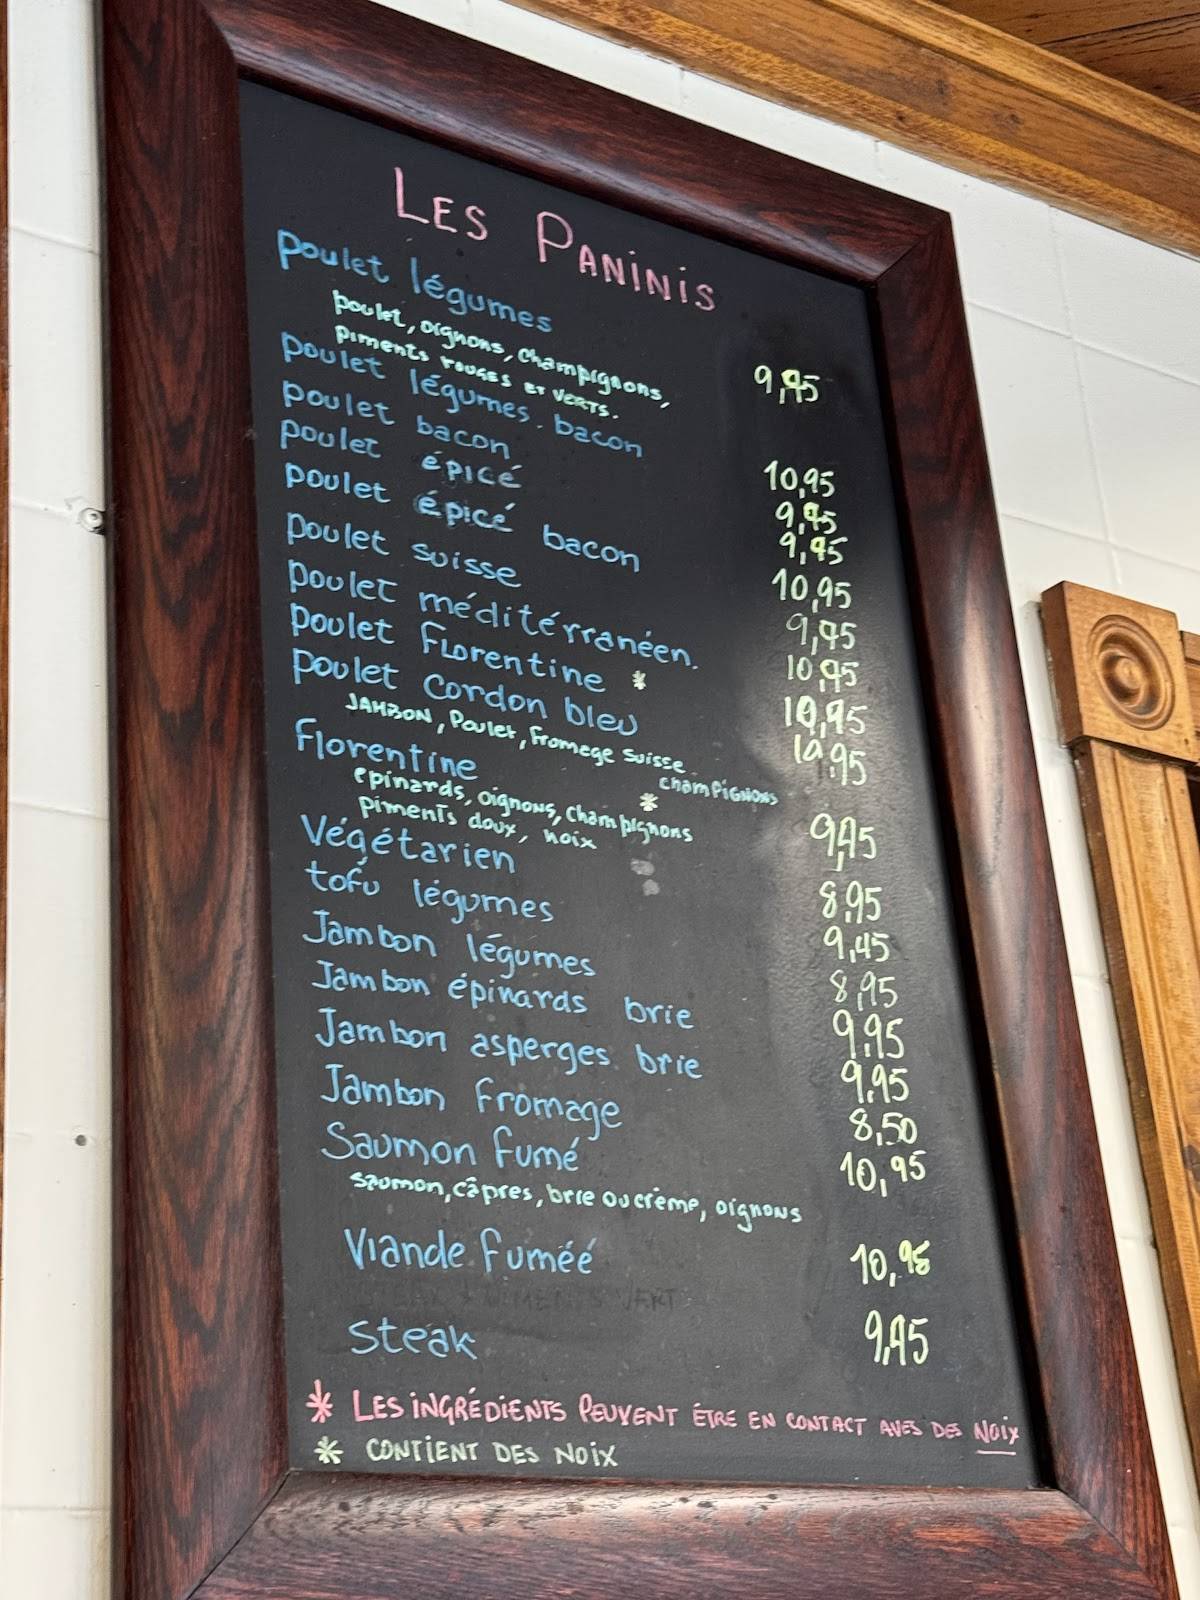 LES PANINIS
Poulet légumes 9,95
poulet, oignons, champignons,
piments rouges et verts.
Poulet légumes. bacon 10,95
poulet bacon 9,95
poulet épicé 9,95
poulet épicé bacon 10,95
poulet suisse 9,95
poulet méditérranéen. 10,95
poulet Florentine * 10,95
poulet cordon bleu 10,95
JAMBON, Poulet, Fromege suisse
champignons
Florentine * 9,95
epinards, oignons, champignons
piments doux, noix
Végétarien 8,95
tofu légumes 9,45
Jambon légumes 8,95
Jambon épinards brie 9,95
Jambon asperges brie 9,95
Jambon fromage 8,50
Saumon fumé 10,95
saumon, câpres, brie ou crème, oignons
Viande fuméé 10,95
VERT
Steak 9,95
* LES INGRÉDIENTS PEUVENT ÊTRE EN CONTACT AVES DES NOIX
* CONTIENT DES NOIX